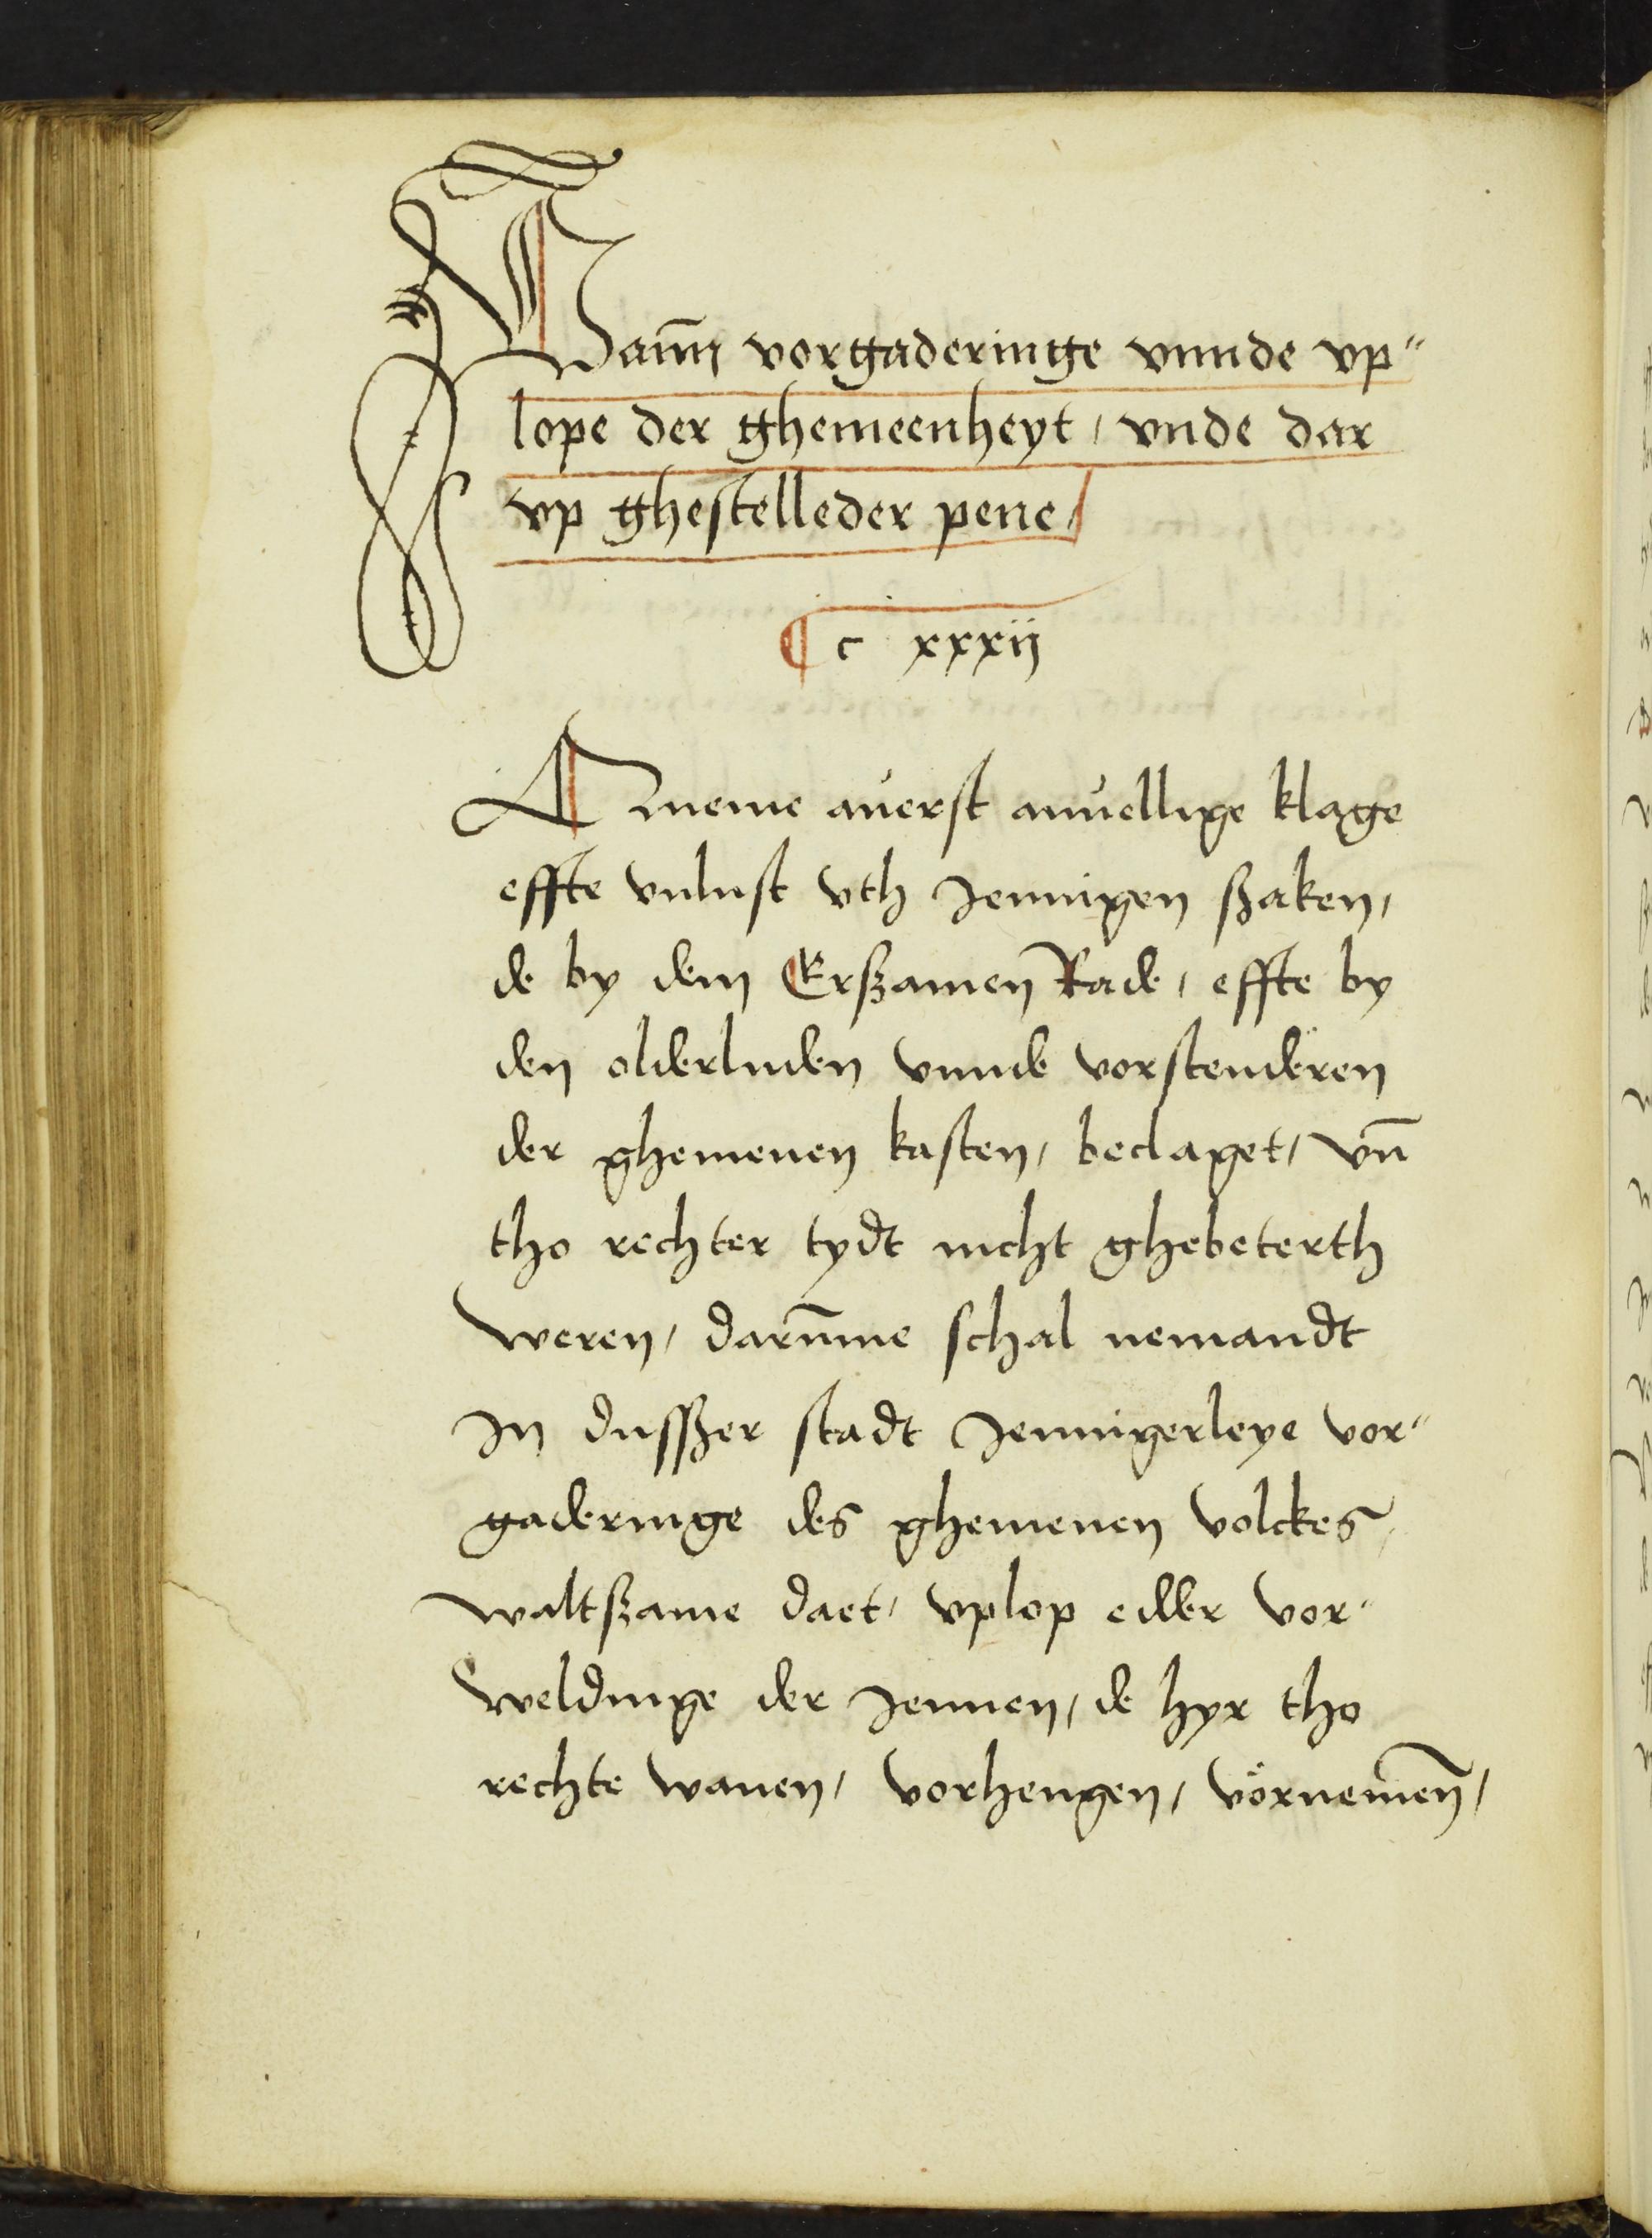 Vann vorgaderinge vnnde vp"
lope der ghemeenheyt / vnde dar
vp ghestelleder pene /
¶ c xxxij
A meme auerst anuellige klage
effte vnlust vth Jennigen szaken /
de by dem Erszamen Rade / effte by
den olderluden vnnde vorstenderen
der ghemenen kasten / beclaget / vn̄
tho rechter tydt nicht ghebeterth
weren / darūme schal nemandt
Jn dussszer stadt Jennigerleye vor"
gaderinge des ghemenen volckes /
waltszame daet / vplop edder vor"
weldinge der Jennen / de hyr tho
rechte wanen / vorhengen / vörnemen̄ /